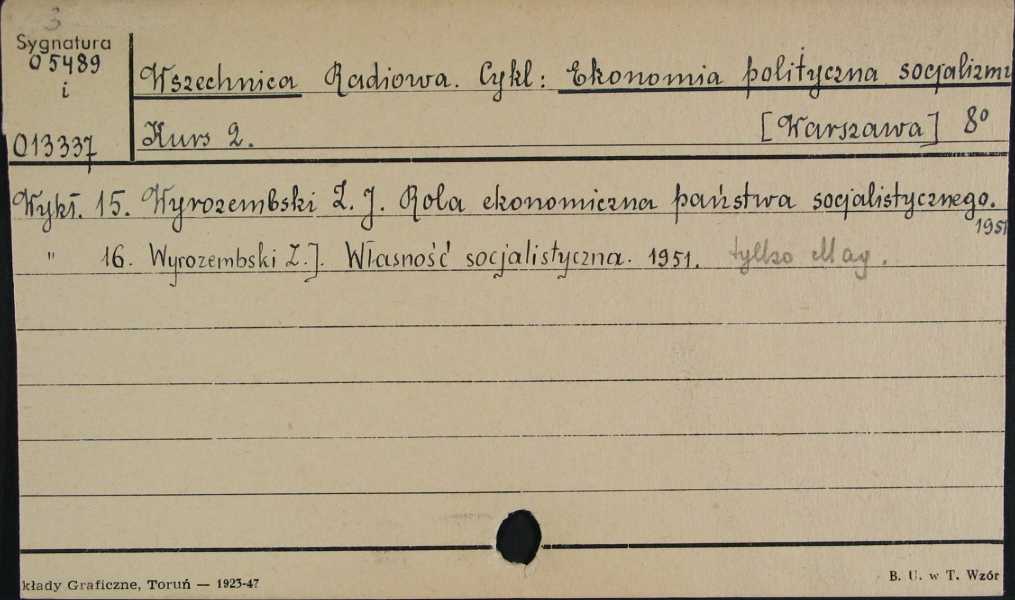 3
Sygnatura
05489
i
013337
Wszechnica Radiowa. Cykl: Ekonomia polityczna socjalizmu
Kurs 2. [Warszawa] 8º
Wykł. 15. Wyrozembski Z. J. Rola ekonomiczna państwa socjalistycznego. 1951
" 16. Wyrozembski Z. J. Własność socjalistyczna. 1951. tylko Mag.
kłady Graficzne, Toruń — 1923-47
B. U. w T. Wzór